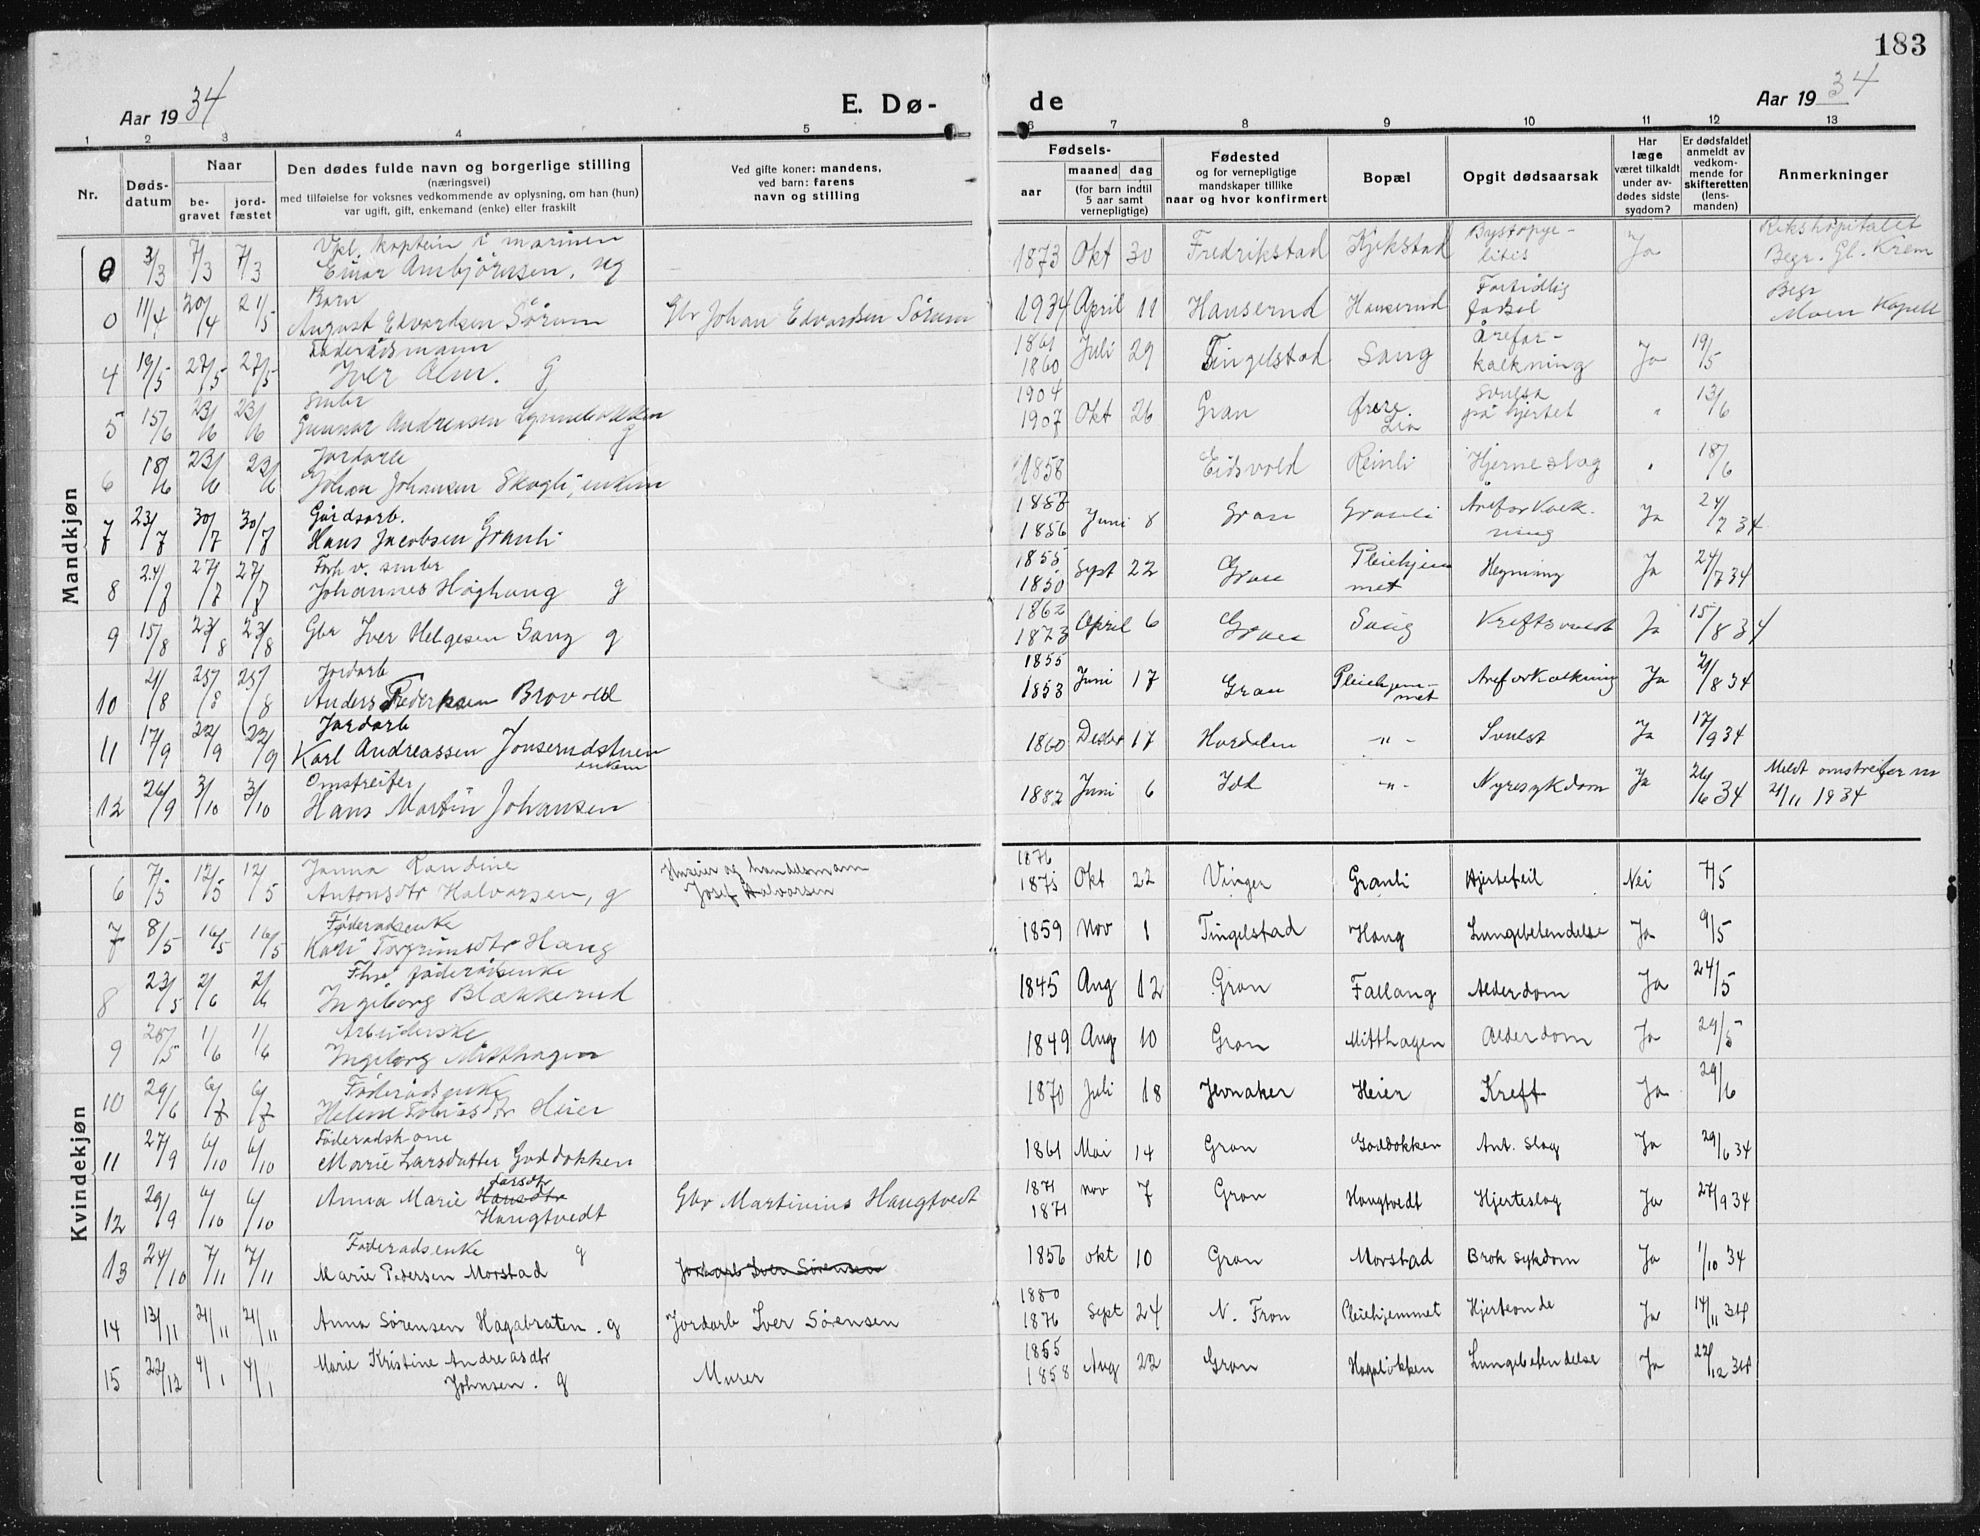 183
Aar 1934
E. Dø-
de
Aar 1934
1 2 3 4 5 6 7 8 9 10 11 12 13
Nr.
Døds-
datum
Naar
be-
gravet
jord-
fæstet
Den dødes fulde navn og borgerlige stilling
(næringsvei)
med tilføielse for voksnes vedkommende av oplysning, om han (hun)
var ugift, gift, enkemand (enke) eller fraskilt
Ved gifte koner: mandens,
ved barn: farens
navn og stilling
Fødsels-
aar
maaned dag
(for barn indtil
5 aar samt
vernepligtige)
Fødested
og for vernepligtige
mandskaper tillike
naar og hvor konfirmert
Bopæl
Opgit dødsaarsak
Har
læge
været tilkaldt
under av-
dødes sidste
sygdom?
Er dødsfaldet
anmeldt av
vedkom-
mende for
skifteretten
(lens-
manden)
Anmerkninger
Mandkjøn
Vpl. kaptein i marinen
0 3/3 7/3 7/3 Einar Ambjörnsen, ug — 1873 Okt 30 Fredrikstad Kjekstad Ja
Rikshospitalet
Begr. Gl. Krem
Barn
0 11/4 20/4 21/5 August Edvardsen Sörum Gbr Johan Edvardsen Sörum 1934 April 11 Hanserud Hanserud Fortidlig
födsel
Begr
Moen Kapell
Föderådsmann
4 19/5 27/5 27/5 Iver Alm. g 1861
1860 Juli 29 Tingelstad Sang Årefor-
kalkning Ja 19/5
Smbr
5 15/6 23/6 23/6 Gunnar Andreasen g 1904
1907 Okt 26 Gran Lia Svulst
på hjertet " 13/6
Jordarb
6 18/6 23/6 23/6 Johan Johansen Skogli, enkem 1858 Eidsvold Reinli Hjerneslag " 18/6
Gårdsarb.
7 23/7 30/7 30/7 Hans Jacobsen Granli 1856 Juni 8 Gran Granli Åreforkalk-
ning Ja 24/7 34
Forh v. smbr
8 24/7 27/7 27/7 Johannes Höghaug g 1855
1850 Sept 22 Gran Pleiehjem
met Ja 24/7 34
9 15/8 23/8 23/8 Gbr Iver Helgesen Sang g 1862
1873 April 6 Gran Sang Kreftsvulst Ja 15/8 34
Jordarb
10 21/8 25/8 25/8 Anders Fredriksen Brovold 1855
1853 Juni 17 Gran Pleiehjem-
met Areforkalkning Ja 21/8 34
Jordarb
11 17/9 22/9 22/9 Karl Andreassen Jonserudstuen
enkem 1860 Desbr 17 Hurdalen -"- Svulst Ja 17/9 34
Omstreifer
12 26/9 3/10 3/10 Hans Martin Johansen 1882 Juni 6 Idd -"- Nyresykdom Ja 26/6 34
Meldt omstreifer
21/11 1934
Kvindekjøn
6 7/5 12/5 12/5 Janna Randine
Antonsdtr Halvorsen, g
handelsmann
Josef Halvorsen
1876
1875 Okt 22 Vinger Granli Hjertefeil Nei 7/5
Føderadsenke
7 8/5 16/5 16/5 Kari Torgrimsdtr Haug 1859 Nov 1 Tingelstad Haug Lungebetendelse Ja 9/5
Fhv föderådsenke
8 23/5 2/6 2/6 Ingeborg Blækkerud 1845 Aug 12 Gran Fallang Alderdom Ja 24/5
Arbeiderske
9 25/5 1/6 1/6 Ingeborg Mitthagen 1849 Aug 10 Gran Mitthagen Alderdom Ja 29/5
Föderådsenke
10 29/6 6/7 6/7 Helene Tobiasdtr Heier 1870 Juli 18 Jevnaker Heier Kreft Ja 29/6
Föderadskone
11 27/9 6/10 6/10 Marie Larsdatter Goddokken 1861 Mai 14 Gran Goddokken Ant. slag Ja 29/6 34
Larsdtr
12 29/9 6/10 6/10 Anna Marie Hansdtr
Haugtvedt Gbr Martinius Haugtvedt 1871
1871 nov 7 Gran Haugtvedt Hjerteslag Ja 27/9 34
Føderadsenke g
13 24/10 7/11 7/11 Marie Pedersen Morstad Jordarb Iver Sörensen 1856 okt 10 Gran Morstad Brok sykdom Ja 1/10 34
14 13/11 21/11 21/11 Anna Sørensen Hagabraten. g Jordarb Iver Sörensen 1880
1876 Sept 24 N. Fron Pleiehjemmet Hjerteonde Ja 14/11 34
15 22/12 4/1 4/1 Marie Kristine Andreasdtr
Johnsen. g Murer 1855
1858 Aug 22 Gran Hagaløkken Lungebetendelse Ja 22/12 34